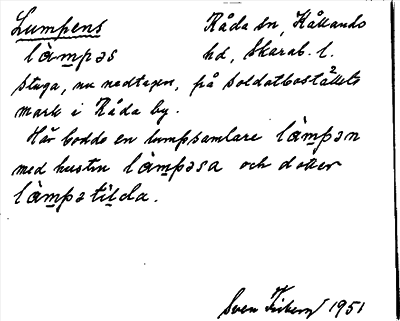 Lumpens Råda sn, Kållands
làm̲pəs hd, Skarab. l.
Stuga, nu nedtagen, på soldatboställets
mark i Råda by.
Här bodde en lumpsamlare làm̲pən
med hustru làm̲pəsa och dotter
làm̲pətil̲da.
Sven 1951